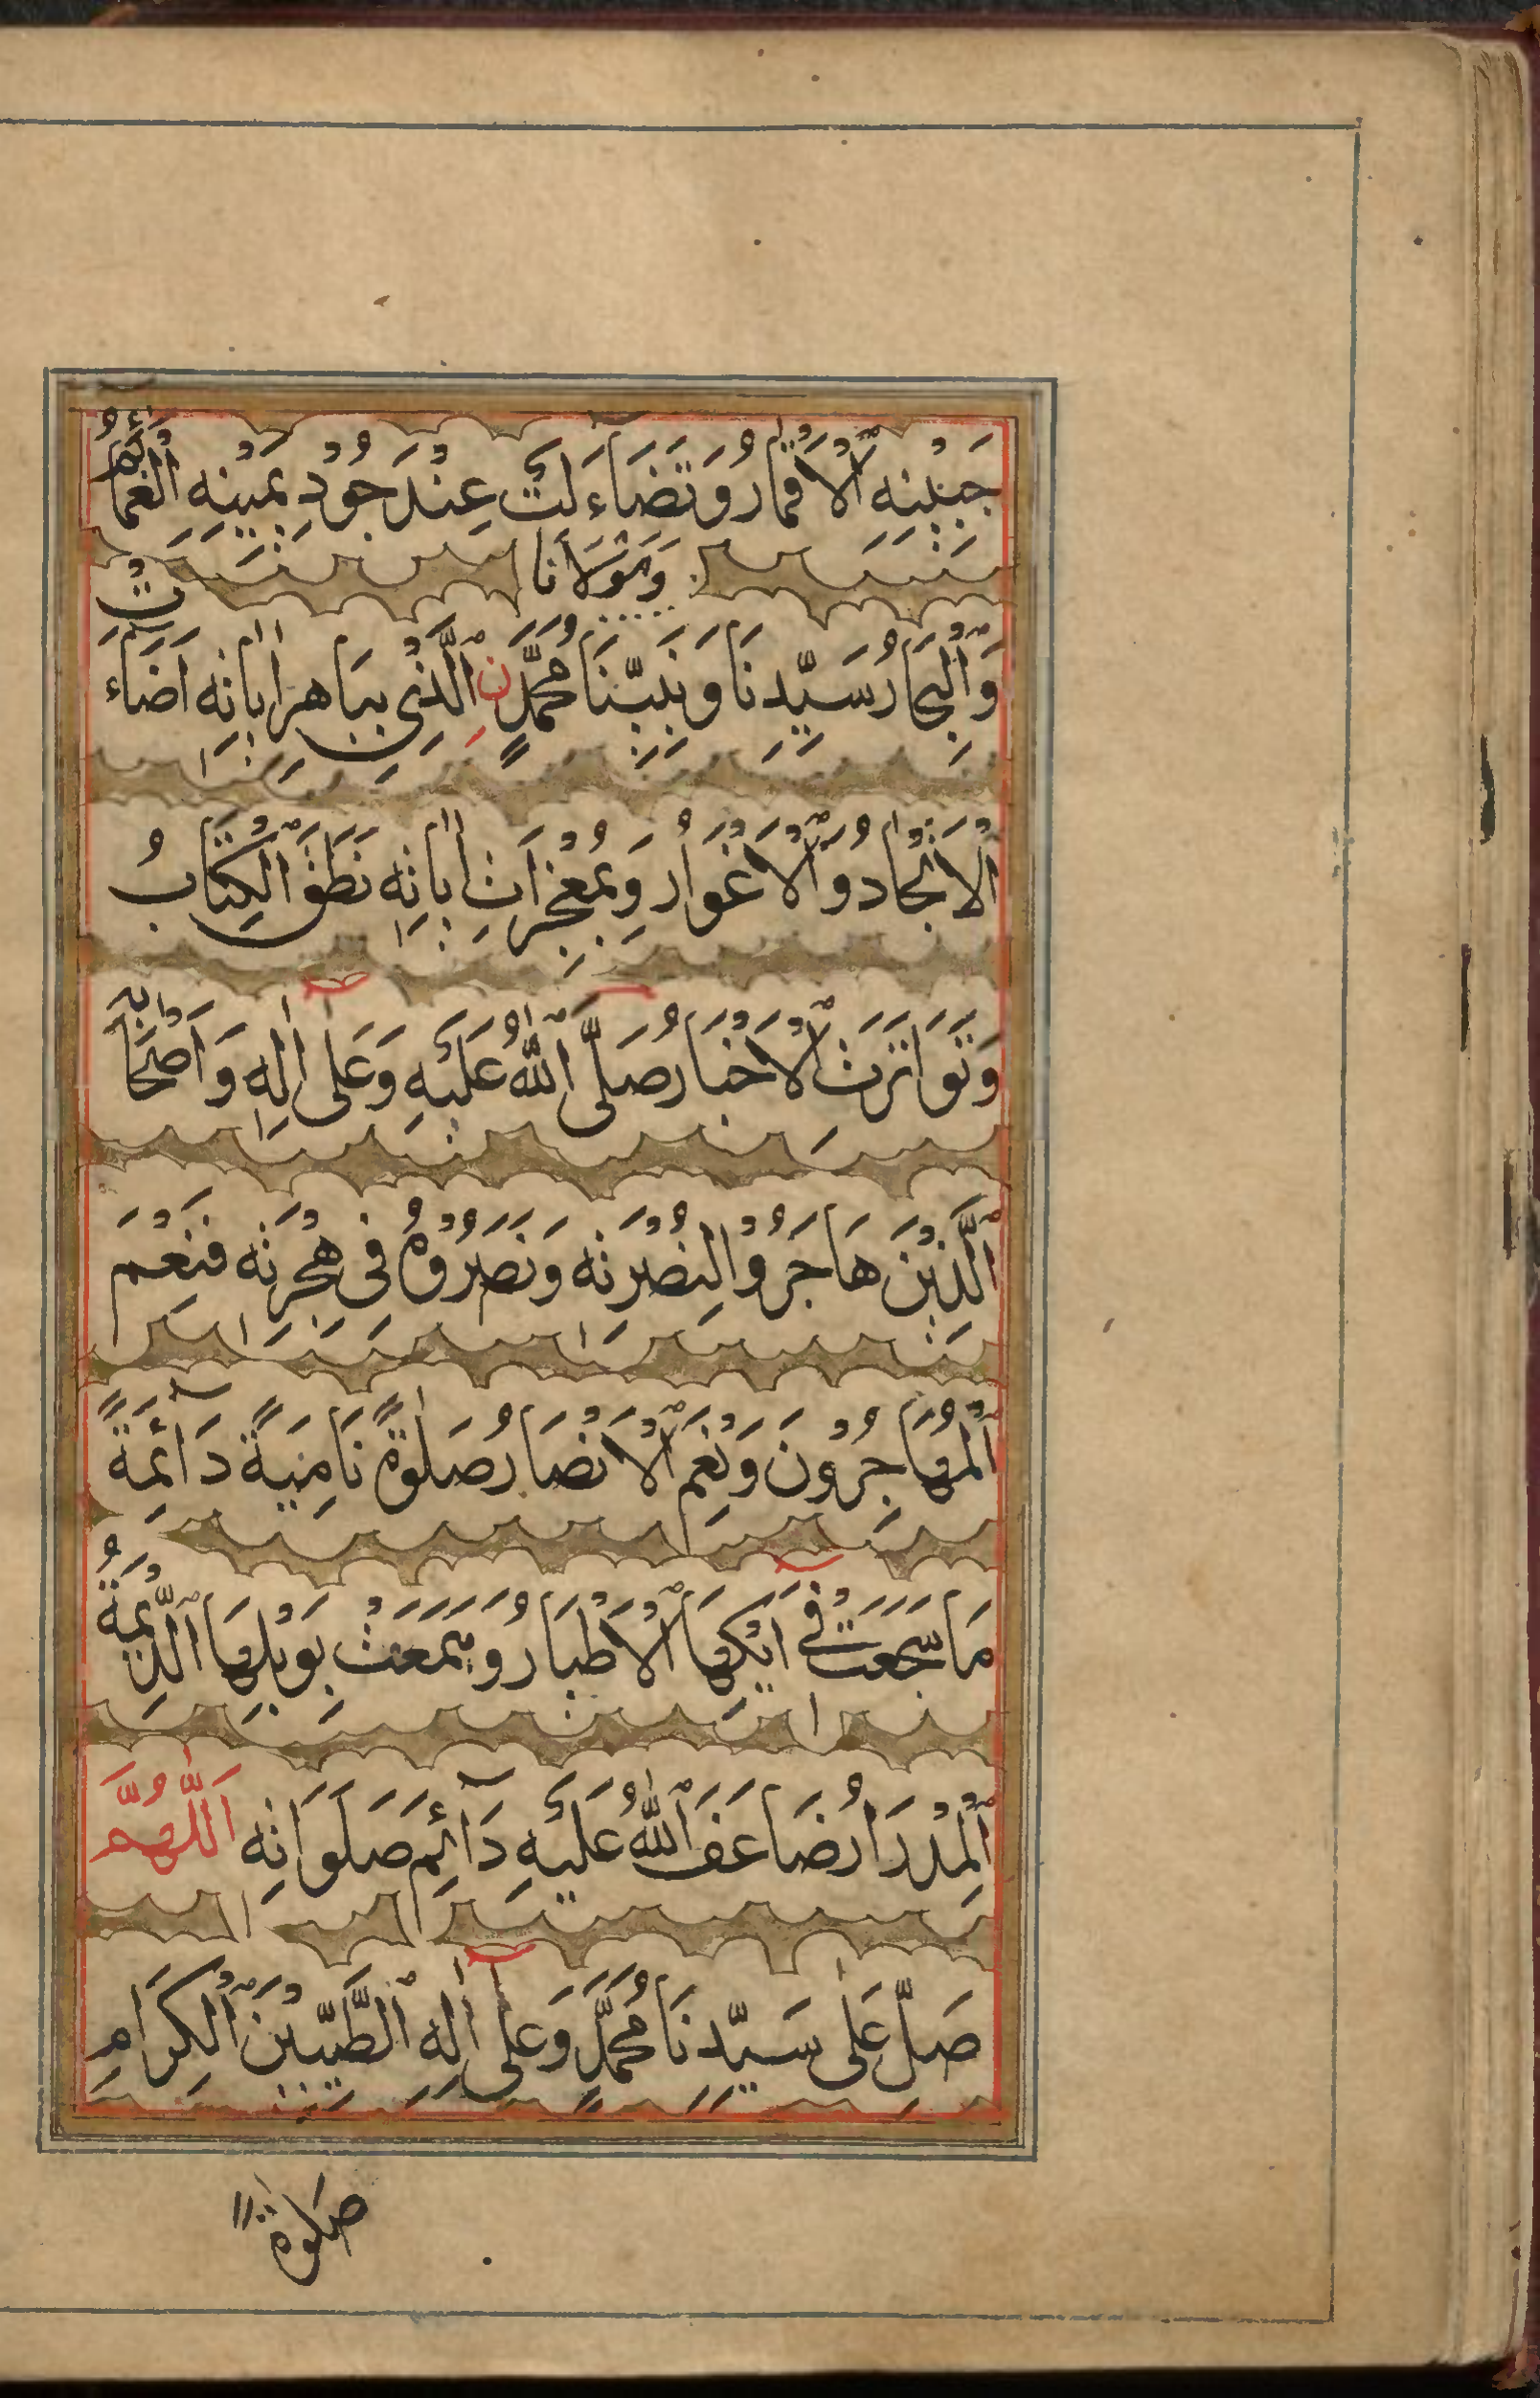 جَبِيْنِهِ ٱلْاَقْمَارُ وَتَضَاءَلَتْ عِنْدَ جُوْدِ يَمِيْنِهِ ٱلْغَمَائِمُ
وَمَوْلَانَا
وَٱلْبِحَارُ سَيِّدِنَا وَنَبِيِّنَا مُحَمَّدٍ نِ ٱلَّذِيْ بِبَاهِرِ اٰيَاتِهِ اَضَاءَتْ
ٱلْاَنْجَادُ وَٱلْاَغْوَارُ وَبِمُعْجِزَاتِ اٰيَاتِهِ نَطَقَ ٱلْكِتَابُ
وَتَوَاتَرَتِ ٱلْاَخْبَارُ صَلَّى ٱللّٰهُ عَلَيْهِ وَعَلٰى اٰلِهِ وَاَصْحَابِهِ
ٱلَّذِيْنَ هَاجَرُوْا لِنُصْرَتِهِ وَنَصَرُوْهُ فِيْ هِجْرَتِهِ فَنِعْمَ
ٱلْمُهَاجِرُوْنَ وَنِعْمَ ٱلْاَنْصَارُ صَلٰوةً نَامِيَةً دَآئِمَةً
مَا سَجَعَتْ فِيْ اَيْكِهَا ٱلْاَطْيَارُ وَهَمَعَتْ بِوَبْلِهَا ٱلدِّيْمَةُ
ٱلْمِدْرَارُ ضَاعَفَ ٱللّٰهُ عَلَيْهِ دَآئِمَ صَلَوَاتِهِ اَللّٰهُمَّ
صَلِّ عَلٰى سَيِّدِنَا مُحَمَّدٍ وَعَلٰى اٰلِهِ ٱلطَّيِّبِيْنَ ٱلْكِرَامِ
صَلٰوةً